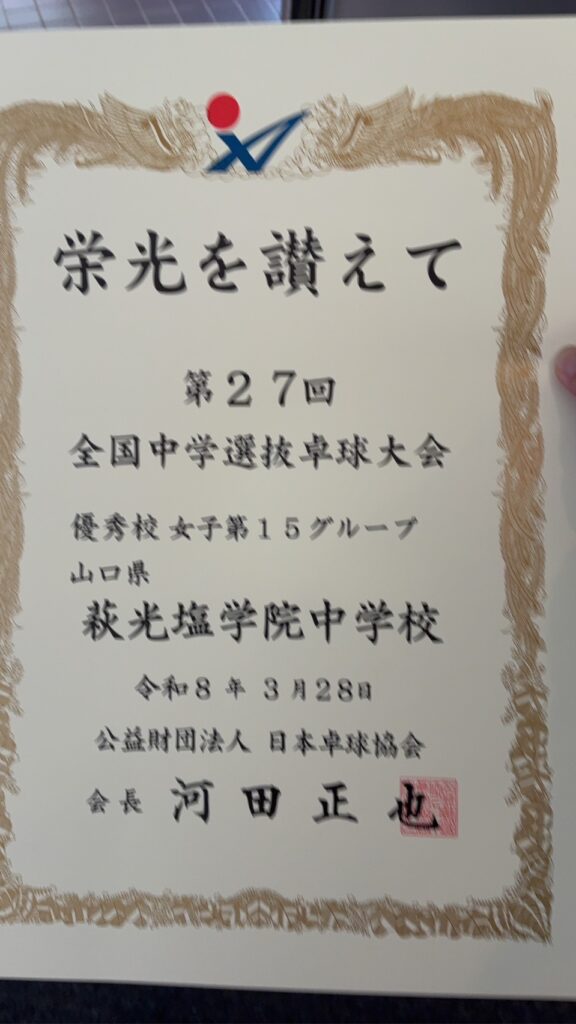 栄光を讃えて
第27回
全国中学選抜卓球大会
優秀校 女子第15グループ
山口県
萩光塩学院中学校
令和8年 3月28日
公益財団法人 日本卓球協会
会長 河田正也